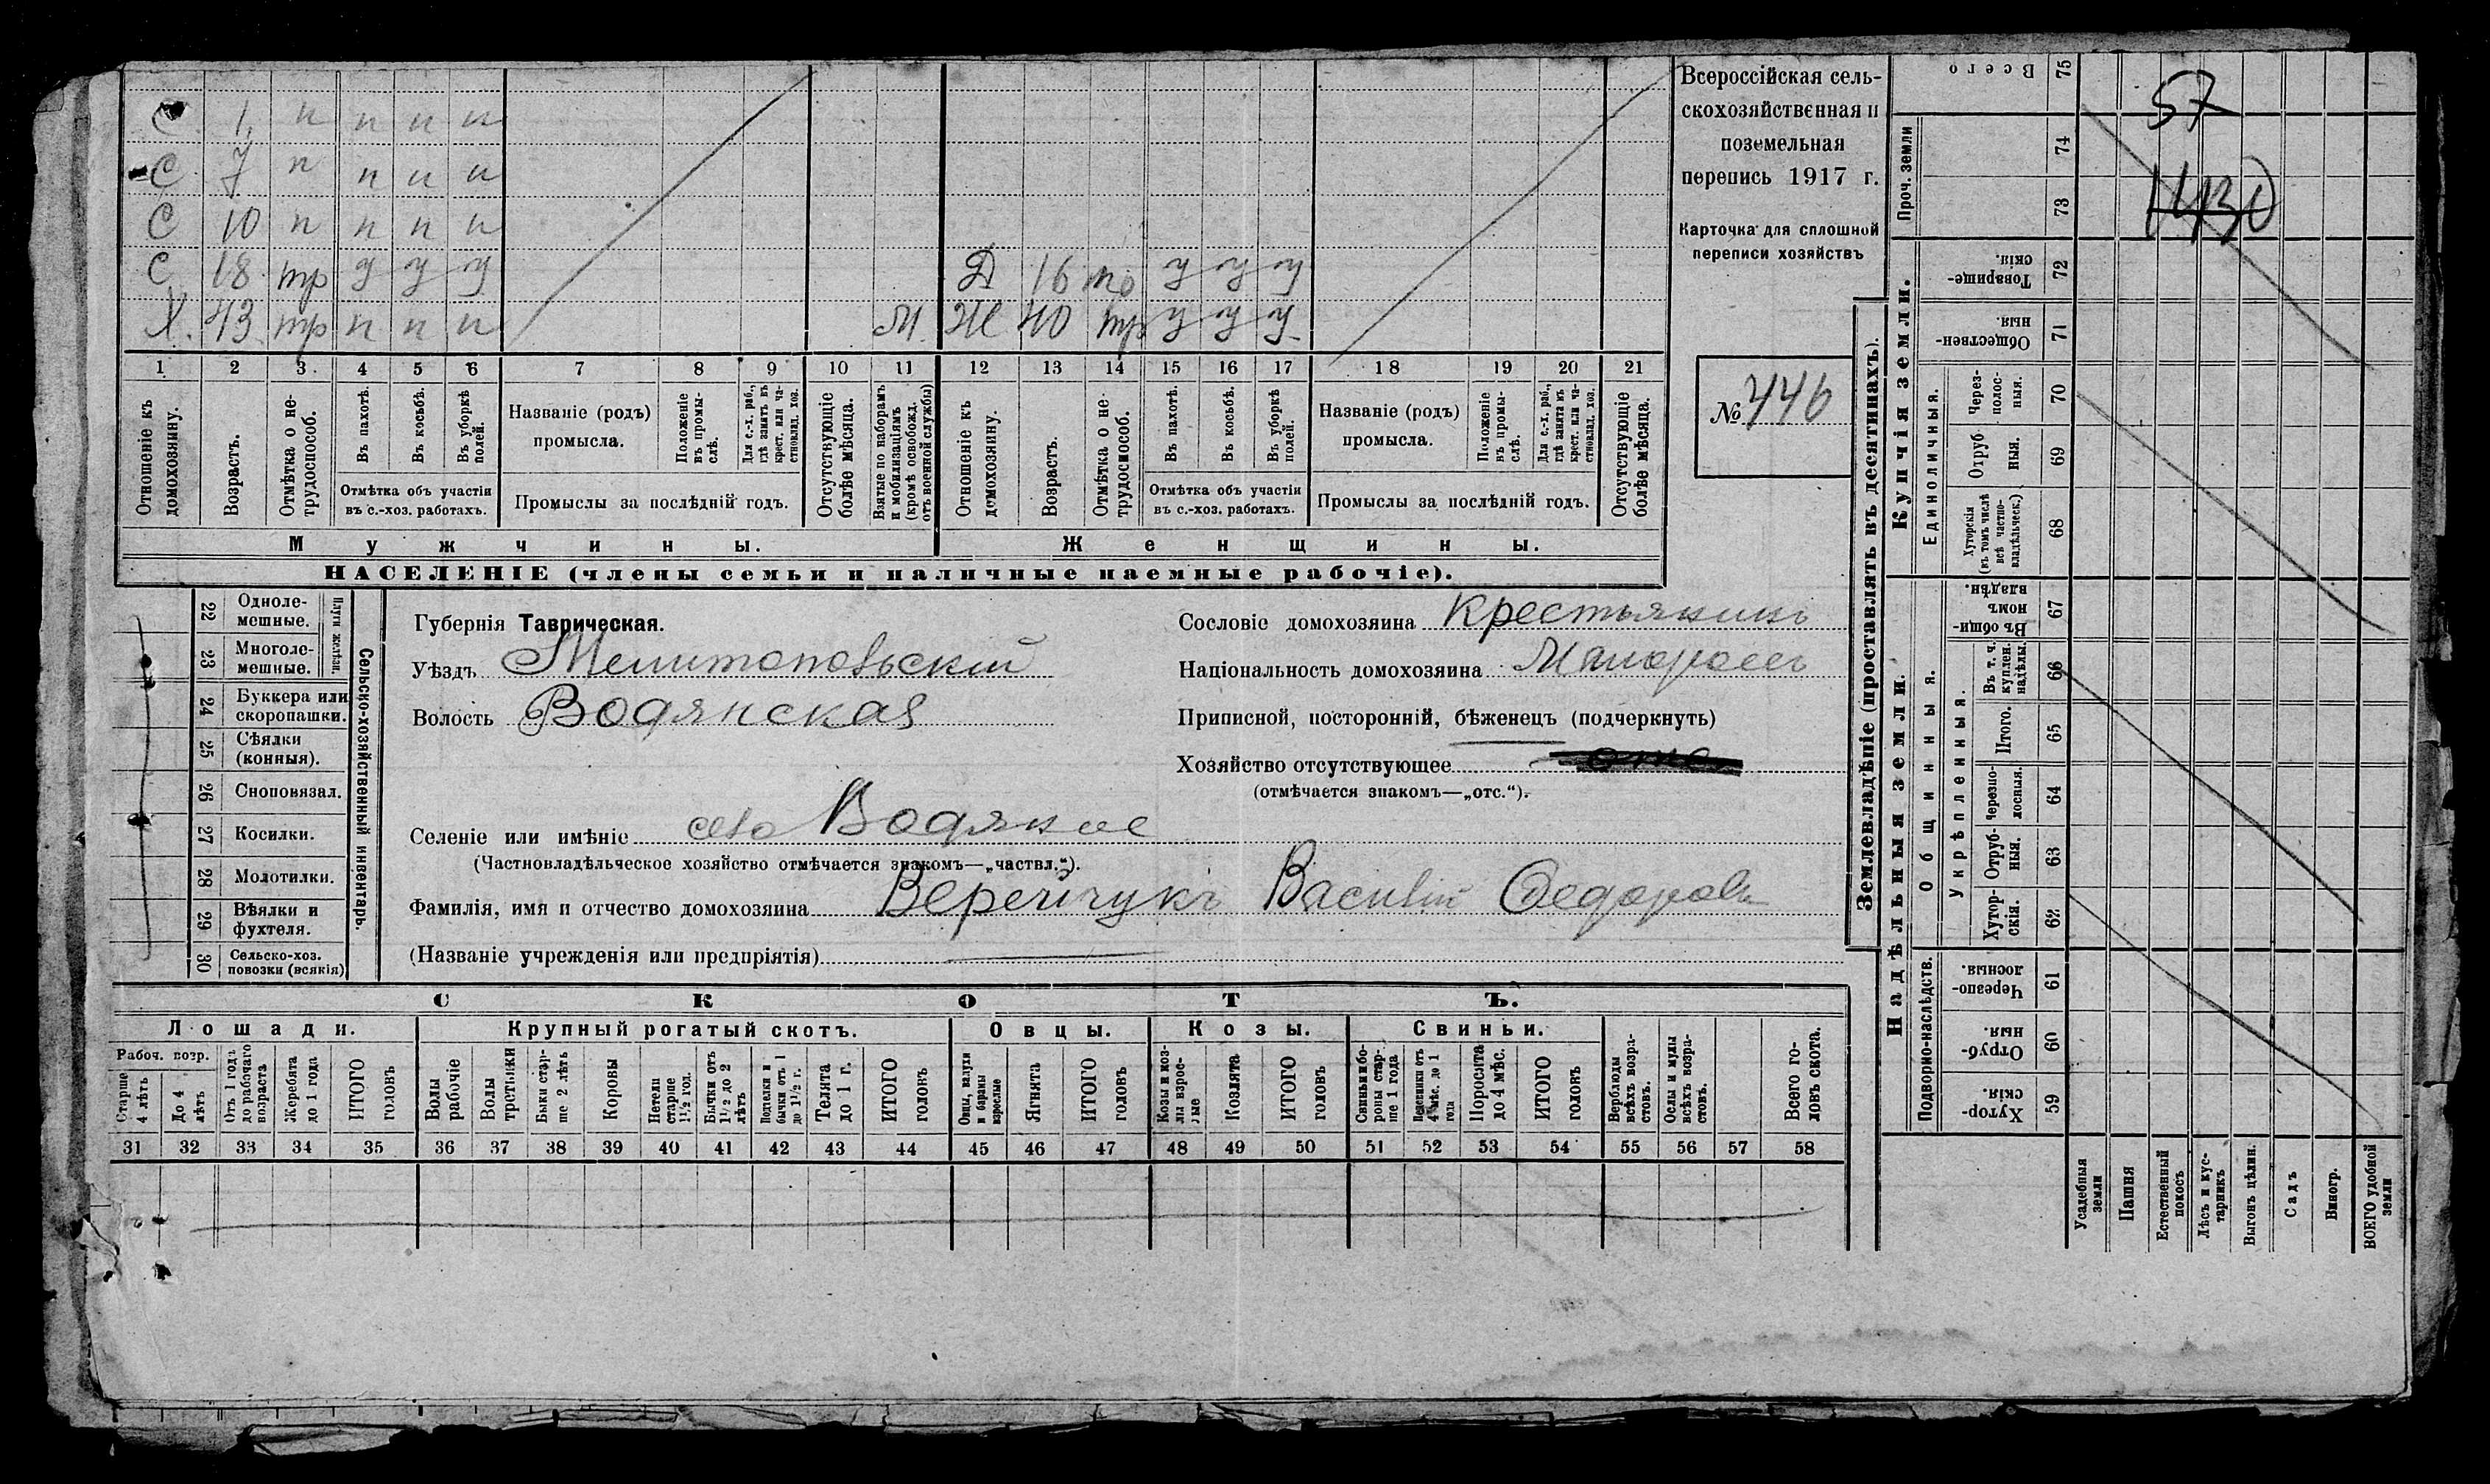 С 1 n n n n
С 7 n n n n
С 10 n n n n
С 18 тр у у у Д 16 тр у у у
Х. 43 тр n n n М Ж 40 тр у у у
1 2 3 4 5 6 7 8 9 10 11 12 13 14 15 16 17 18 19 20 21
Отношеніе къ домохозяину.
Возрастъ.
Отмѣтка о не-
трудоспособ.
Въ пахотѣ.
Въ косьбѣ.
Въ уборкѣ
полей.
Отмѣтка объ участіи
въ с.-хоз. работахъ.
Названіе (родъ)
промысла.
Положеніе
въ промы-
слѣ.
Для с.-х. раб.,
гдѣ занятъ въ
крест. или ча-
стновлад. хоз.
Промыслы за послѣдній годъ.
Отсутствующіе
болѣе мѣсяца.
Взятые по наборамъ
и мобилизаціямъ
(кромѣ освобожд.
отъ военной службы)
Отношеніе къ
домохозяину.
Возрастъ.
Отмѣтка о не-
трудоспособ.
Въ пахотѣ.
Въ косьбѣ.
Въ уборкѣ
полей.
Отмѣтка объ участіи
въ с.-хоз. работахъ.
Названіе (родъ)
промысла.
Положеніе
въ промы-
слѣ.
Для с.-х. раб.,
гдѣ занята въ
крест. или ча-
стновлад. хоз.
Промыслы за послѣдній годъ.
Отсутствующіе
болѣе мѣсяца.
Мужчины.
Женщины.
НАСЕЛЕНІЕ (члены семьи и наличные наемные рабочіе).
Всероссійская сель-
скохозяйственная и
поземельная
перепись 1917 г.
Карточка для сплошной
переписи хозяйствъ
№ 446
22 Одноле-
мешные.
23 Многоле-
мешные.
Плуги желѣзн.
24 Буккера или
скоропашки.
25 Сѣялки
(конныя).
26 Сноповязал.
27 Косилки.
28 Молотилки.
29 Вѣялки и
фухтеля.
30 Сельско-хоз.
повозки (всякія)
Сельско-хозяйственный инвентарь.
Губернія Таврическая.
Уѣздъ Мелитопольскій
Волость Водянская
Селеніе или имѣніе село Водяное
(Частновладѣльческое хозяйство отмѣчается знакомъ—„частвл.“).
Фамилія, имя и отчество домохозяина Верейчукъ Василій Федоровъ
(Названіе учрежденія или предпріятія)
Сословіе домохозяина Крестьянинъ
Національность домохозяина Малороссъ
Приписной, посторонній, бѣженецъ (подчеркнуть)
Хозяйство отсутствующее
(отмѣчается знакомъ—„отс.“).
СКОТЪ.
Лошади. Крупный рогатый скотъ. Овцы. Козы. Свиньи.
Рабоч. возр.
Старше
4 лѣтъ
До 4
лѣтъ
Отъ 1 года
до рабочаго
возраста
Жеребята
до 1 года
ИТОГО
головъ
Волы
рабочіе
Волы
третьяки
Быки стар-
ше 2 лѣтъ
Коровы
Нетели
старше
1½ год.
Бычки отъ
1½ до 2
лѣтъ
Подтелки и
бычки отъ 1
до 1½ г.
Телята
до 1 г.
ИТОГО
головъ
Овцы, валухи
и бараны
взрослые
Ягнята
ИТОГО
головъ
Козы и коз-
лы взрос-
лые
Козлята
ИТОГО
головъ
Свиньи и бо-
ровы стар-
ше 1 года
Подсвинки отъ
4 мѣс. до 1
года
Поросята
до 4 мѣс.
ИТОГО
головъ
Верблюды
всѣхъ возра-
стовъ.
Ослы и мулы
всѣхъ возра-
стовъ.
Всего го-
ловъ скота.
31 32 33 34 35 36 37 38 39 40 41 42 43 44 45 46 47 48 49 50 51 52 53 54 55 56 57 58
57
1430
Землевладѣніе (проставлять въ десятинахъ).
Купчія земли.
Надѣльныя земли.
Всего 75
Проч. земли 74
73
Товарище-
скія. 72
Обществен-
ныя. 71
Единоличныя.
Через-
полос-
ныя. 70
Отруб-
ныя. 69
Хуторскія
(въ томъ числѣ
всѣ частно-
владѣльческ.) 68
Общинныя.
Въ общи-
номъ
владѣн. 67
Укрѣпленныя.
Въ т. ч.
куплен.
надѣлы. 66
Итого. 65
Черезпо-
лосныя. 64
Отруб-
ныя. 63
Хутор-
скія. 62
Подворно-наслѣдств.
Черезпо-
лосныя. 61
Отруб-
ныя. 60
Хутор-
скія. 59
Усадебныя
земли
Пашня
Естественный
покосъ
Лѣсъ и кус-
тарникъ
Выгонъ цѣлин.
Садъ
Виногр.
ВСЕГО удобной
земли